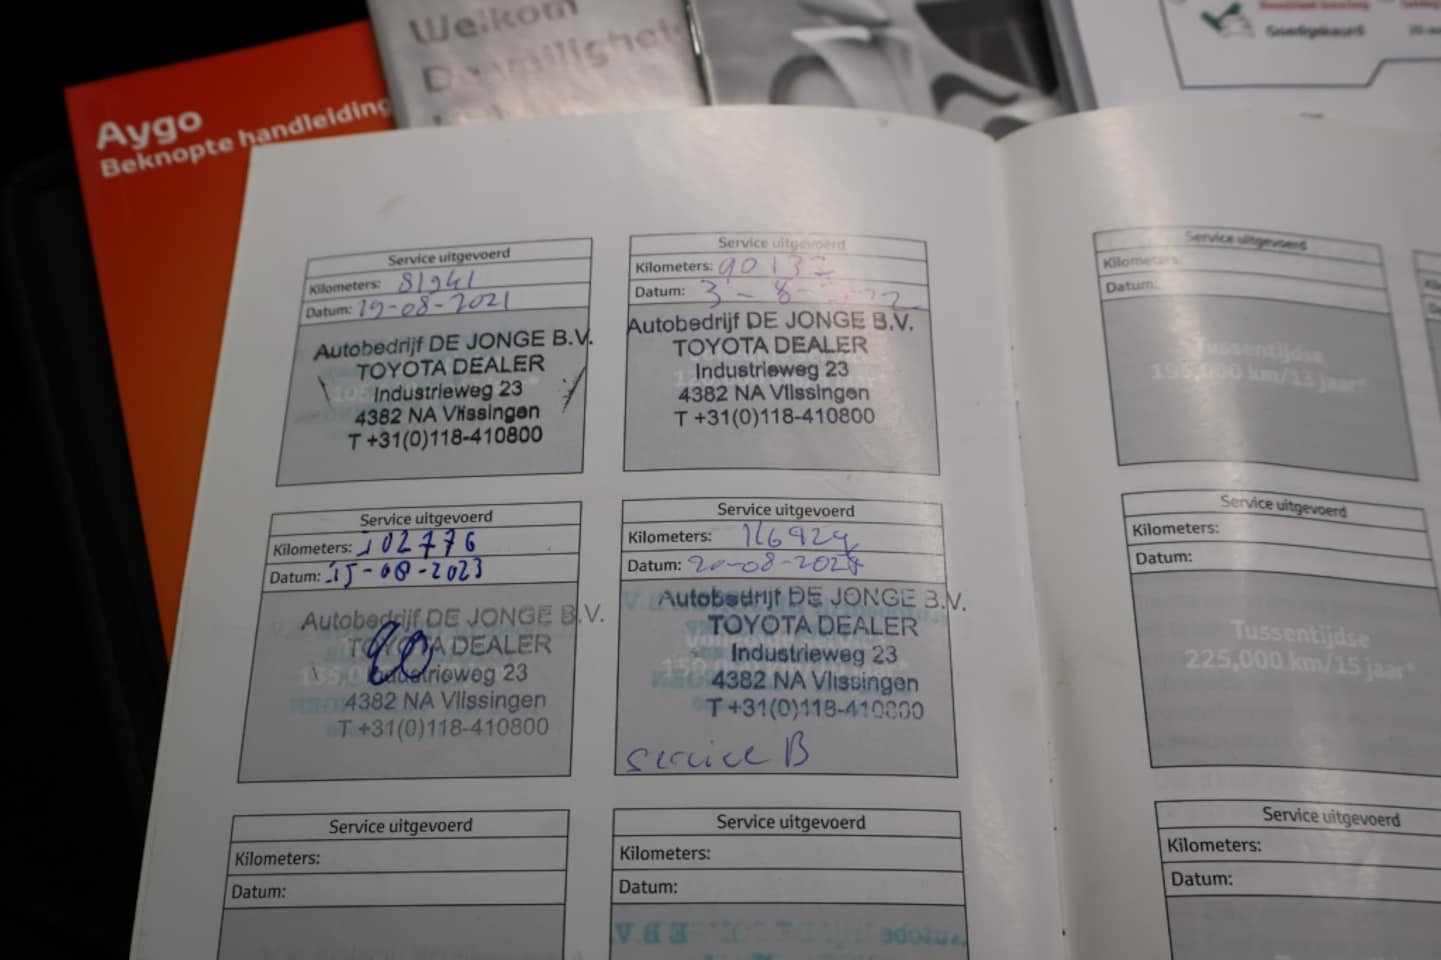 Aygo
Beknopte handleiding
Welkom
De veiligheid
Goedgekeurd
Service uitgevoerd
Kilometers: 81941
Datum: 19-08-2021
Autobedrijf DE JONGE B.V.
TOYOTA DEALER
Industrieweg 23
4382 NA Vlissingen
T +31(0)118-410800
Service uitgevoerd
Kilometers: 90132
Datum: 3-8-2022
Autobedrijf DE JONGE B.V.
TOYOTA DEALER
Industrieweg 23
4382 NA Vlissingen
T +31(0)118-410800
Service uitgevoerd
Kilometers:
Datum:
Tussentijdse
195,000 km/13 jaar*
Service uitgevoerd
Kilometers: 102776
Datum: 15-08-2023
Autobedrijf DE JONGE B.V.
TOYOTA DEALER
Industrieweg 23
4382 NA Vlissingen
T +31(0)118-410800
Service uitgevoerd
Kilometers: 116924
Datum: 20-08-2024
Autobedrijf DE JONGE B.V.
TOYOTA DEALER
Industrieweg 23
4382 NA Vlissingen
T +31(0)118-410800
service B
Service uitgevoerd
Kilometers:
Datum:
Tussentijdse
225,000 km/15 jaar*
Service uitgevoerd
Kilometers:
Datum:
Service uitgevoerd
Kilometers:
Datum:
Service uitgevoerd
Kilometers:
Datum: